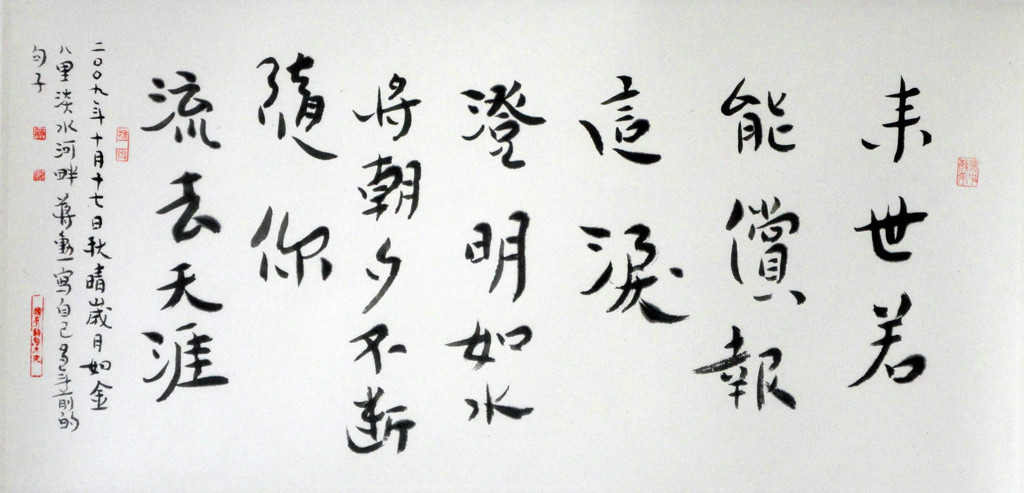 来世若
能償報
這淚
澄明如水
將朝夕不断
隨你
流去天涯
二〇〇九年十月十七日秋晴歲月如金
八里淡水河畔蔣勳寫自己多年前的
句子